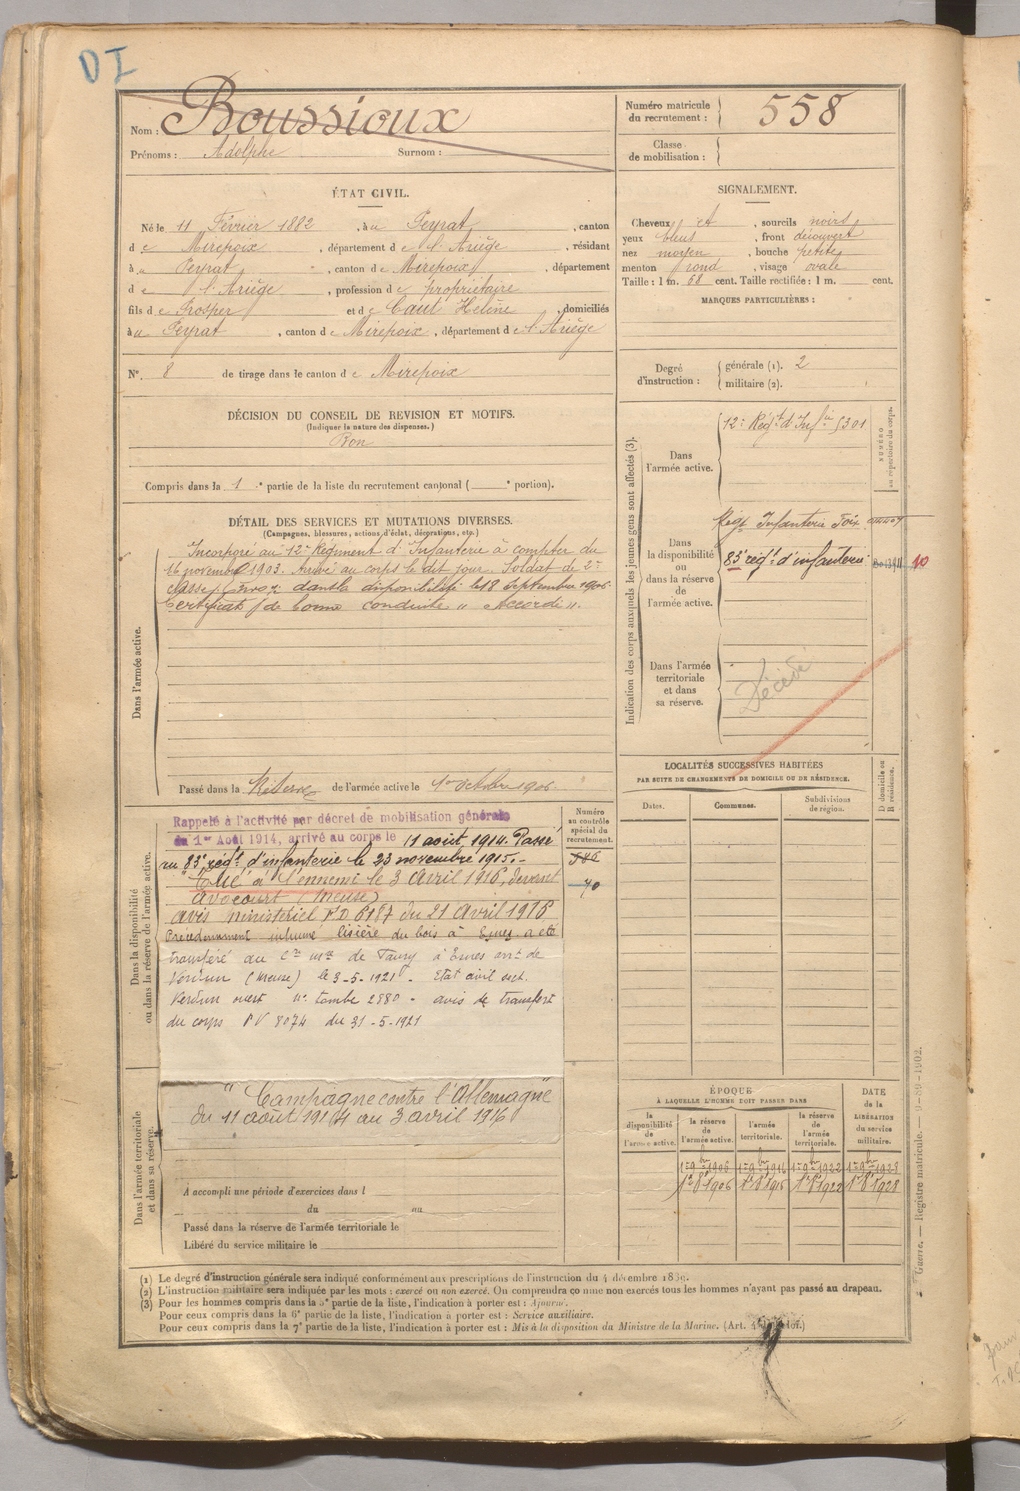 DI
Nom : Boussioux
Prénoms : Adolphe Surnom :
Numéro matricule du recrutement : 558
Classe de mobilisation :
ÉTAT CIVIL.
Né le 11 Février 1882, à Peyrat, canton
de Mirepoix, département de l'Ariège, résidant
à Peyrat, canton de Mirepoix, département
de l'Ariège, profession de propriétaire
fils de Prosper et de Caut Hélène, domiciliés
à Peyrat, canton de Mirepoix, département de l'Ariège
N° 8 de tirage dans le canton de Mirepoix
SIGNALEMENT.
Cheveux et, sourcils noirs
yeux bleus, front découvert
nez moyen, bouche petite
menton rond, visage ovale
Taille : 1 m. 68 cent. Taille rectifiée : 1 m. cent.
MARQUES PARTICULIÈRES :
Degré d'instruction : générale (1). 2
militaire (2).
DÉCISION DU CONSEIL DE REVISION ET MOTIFS.
(Indiquer la nature des dispenses.)
Bon
Compris dans la 1e partie de la liste du recrutement cantonal ( e portion).
DÉTAIL DES SERVICES ET MUTATIONS DIVERSES.
(Campagnes, blessures, actions d'éclat, décorations, etc.)
Dans l'armée active.
Incorporé au 12e Régiment d'Infanterie à compter du
16 novembre 1903. Arrivé au corps le dit jour. Soldat de 2e
classe. Envoyé dans la disponibilité le 18 Septembre 1906
Certificat de bonne conduite "Accordé".
Passé dans la Réserve de l'armée active le 1er Octobre 1906.
Indication des corps auxquels les jeunes gens sont affectés (3).
NUMÉRO au répertoire du corps.
Dans l'armée active.
12e Régt d'Infie 5301
Dans la disponibilité ou dans la réserve de l'armée active.
Régt Infanterie Foix
83e régt d'infanterie 10
Dans l'armée territoriale et dans sa réserve.
Décédé
LOCALITÉS SUCCESSIVES HABITÉES
PAR SUITE DE CHANGEMENTS DE DOMICILE OU DE RÉSIDENCE.
Dates. Communes. Subdivisions de région. D domicile ou R résidence.
Dans la disponibilité ou dans la réserve de l'armée active.
Numéro au contrôle spécial du recrutement.
546
40
Rappelé à l'activité par décret de mobilisation générale
du 1er Août 1914, arrivé au corps le 11 août 1914. Passé
au 83e régt d'infanterie le 23 novembre 1915.-
"Tué" à l'ennemi le 3 Avril 1916, devant
Avocourt (Meuse)
avis ministériel N° D 6187 du 21 Avril 1916
Précédemment inhumé lisière du bois à Esnes a été
transféré au Cre mre de Fanry à Esnes art de
Verdun (Meuse) le 3-5-1921 - Etat civil sect.
Verdun ouest n° tombe 2880 - avis de transfert
du corps PV 8074 du 31-5-1921
"Campagne contre l'Allemagne"
du 11 août 1914 au 3 avril 1916
Dans l'armée territoriale et dans sa réserve.
A accompli une période d'exercices dans l
du au
Passé dans la réserve de l'armée territoriale le
Libéré du service militaire le
ÉPOQUE
À LAQUELLE L'HOMME DOIT PASSER DANS
la disponibilité de l'armée active. la réserve de l'armée active. l'armée territoriale. la réserve de l'armée territoriale. DATE de la LIBÉRATION du service militaire.
1er 9bre 1906 1er 9bre 1916 1er 9bre 1922 1er 9bre 1928
1er 8bre 1906 1er 8bre 1916 1er 8bre 1922 1er 8bre 1928
Guerre. — Registre matricule. — 9-89-1902.
(1) Le degré d'instruction générale sera indiqué conformément aux prescriptions de l'instruction du 4 décembre 1889.
(2) L'instruction militaire sera indiquée par les mots : exercé ou non exercé. On comprendra comme non exercés tous les hommes n'ayant pas passé au drapeau.
(3) Pour les hommes compris dans la 5e partie de la liste, l'indication à porter est : Ajourné.
Pour ceux compris dans la 6e partie de la liste, l'indication à porter est : Service auxiliaire.
Pour ceux compris dans la 7e partie de la liste, l'indication à porter est : Mis à la disposition du Ministre de la Marine. (Art.